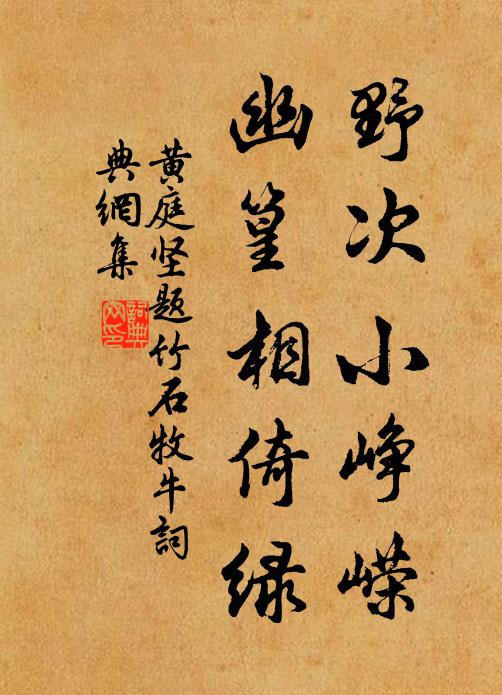 野次小峥嵘
幽篁相倚绿
黄庭坚题竹石牧牛詞
典網集
詞典網印